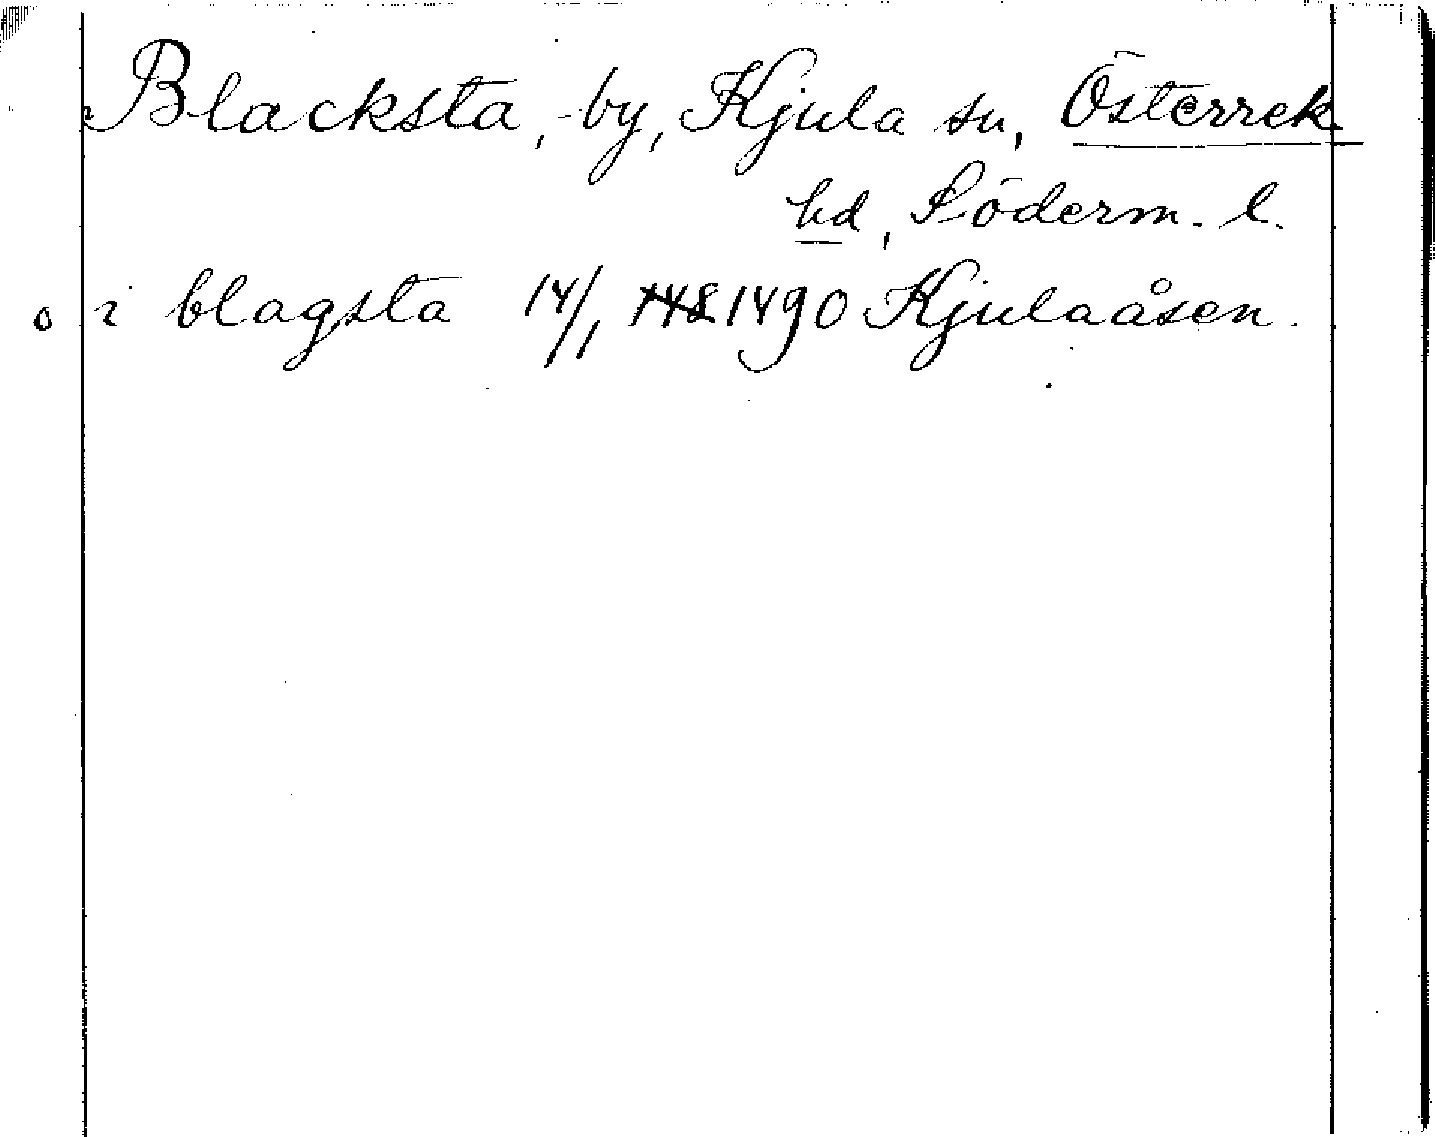 Blacksta, by, Kjula sn, Österrek
hd, Söderm. l.
o i blagsta 14/1 148 1490 Kjulaåsen.